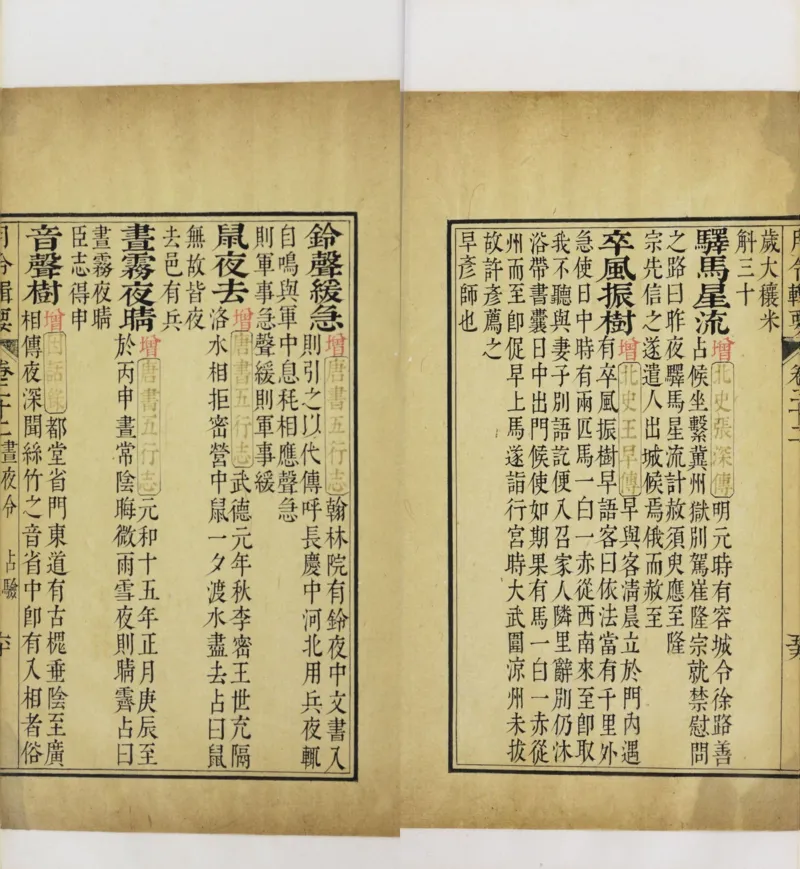 月令輯要
卷二十二
歲大穰米
斛三十
驛馬星流 增 北史張深傳 明元時有容城令徐路善
占候坐繫冀州獄別駕崔隆宗就禁慰問
之路曰昨夜驛馬星流計赦須臾應至隆
宗先信之遂遣人出城候焉俄而赦至
卒風振樹 增 北史王早傳 早與客清晨立於門內遇
有卒風振樹早語客曰依法當有千里外
急使日中時有兩匹馬一白一赤從西南來至卽取
我不聽與妻子別語訖便入召家人隣里辭別仍沐
浴帶書囊日中出門候使如期果有馬一白一赤從
州而至卽促早上馬遂詣行宮時大武圍涼州未拔
故許彥薦之
早彥師也
鈴聲緩急 增 唐書五行志 翰林院有鈴夜中文書入
則引之以代傳呼長慶中河北用兵夜輒
自鳴與軍中息耗相應聲急
則軍事急聲緩則軍事緩
鼠夜去 增 唐書五行志 武德元年秋李密王世充隔
洛水相拒密營中鼠一夕渡水盡去占曰鼠
無故皆夜
去邑有兵
晝霧夜晴 增 唐書五行志 元和十五年正月庚辰至
於丙申晝常陰晦微雨雪夜則晴霽占曰
晝霧夜晴
臣志得申
音聲樹 增 因話錄 都堂省門東道有古槐垂陰至廣
相傳夜深聞絲竹之音省中卽有入相者俗
月令輯要
卷二十二 晝夜令 占驗